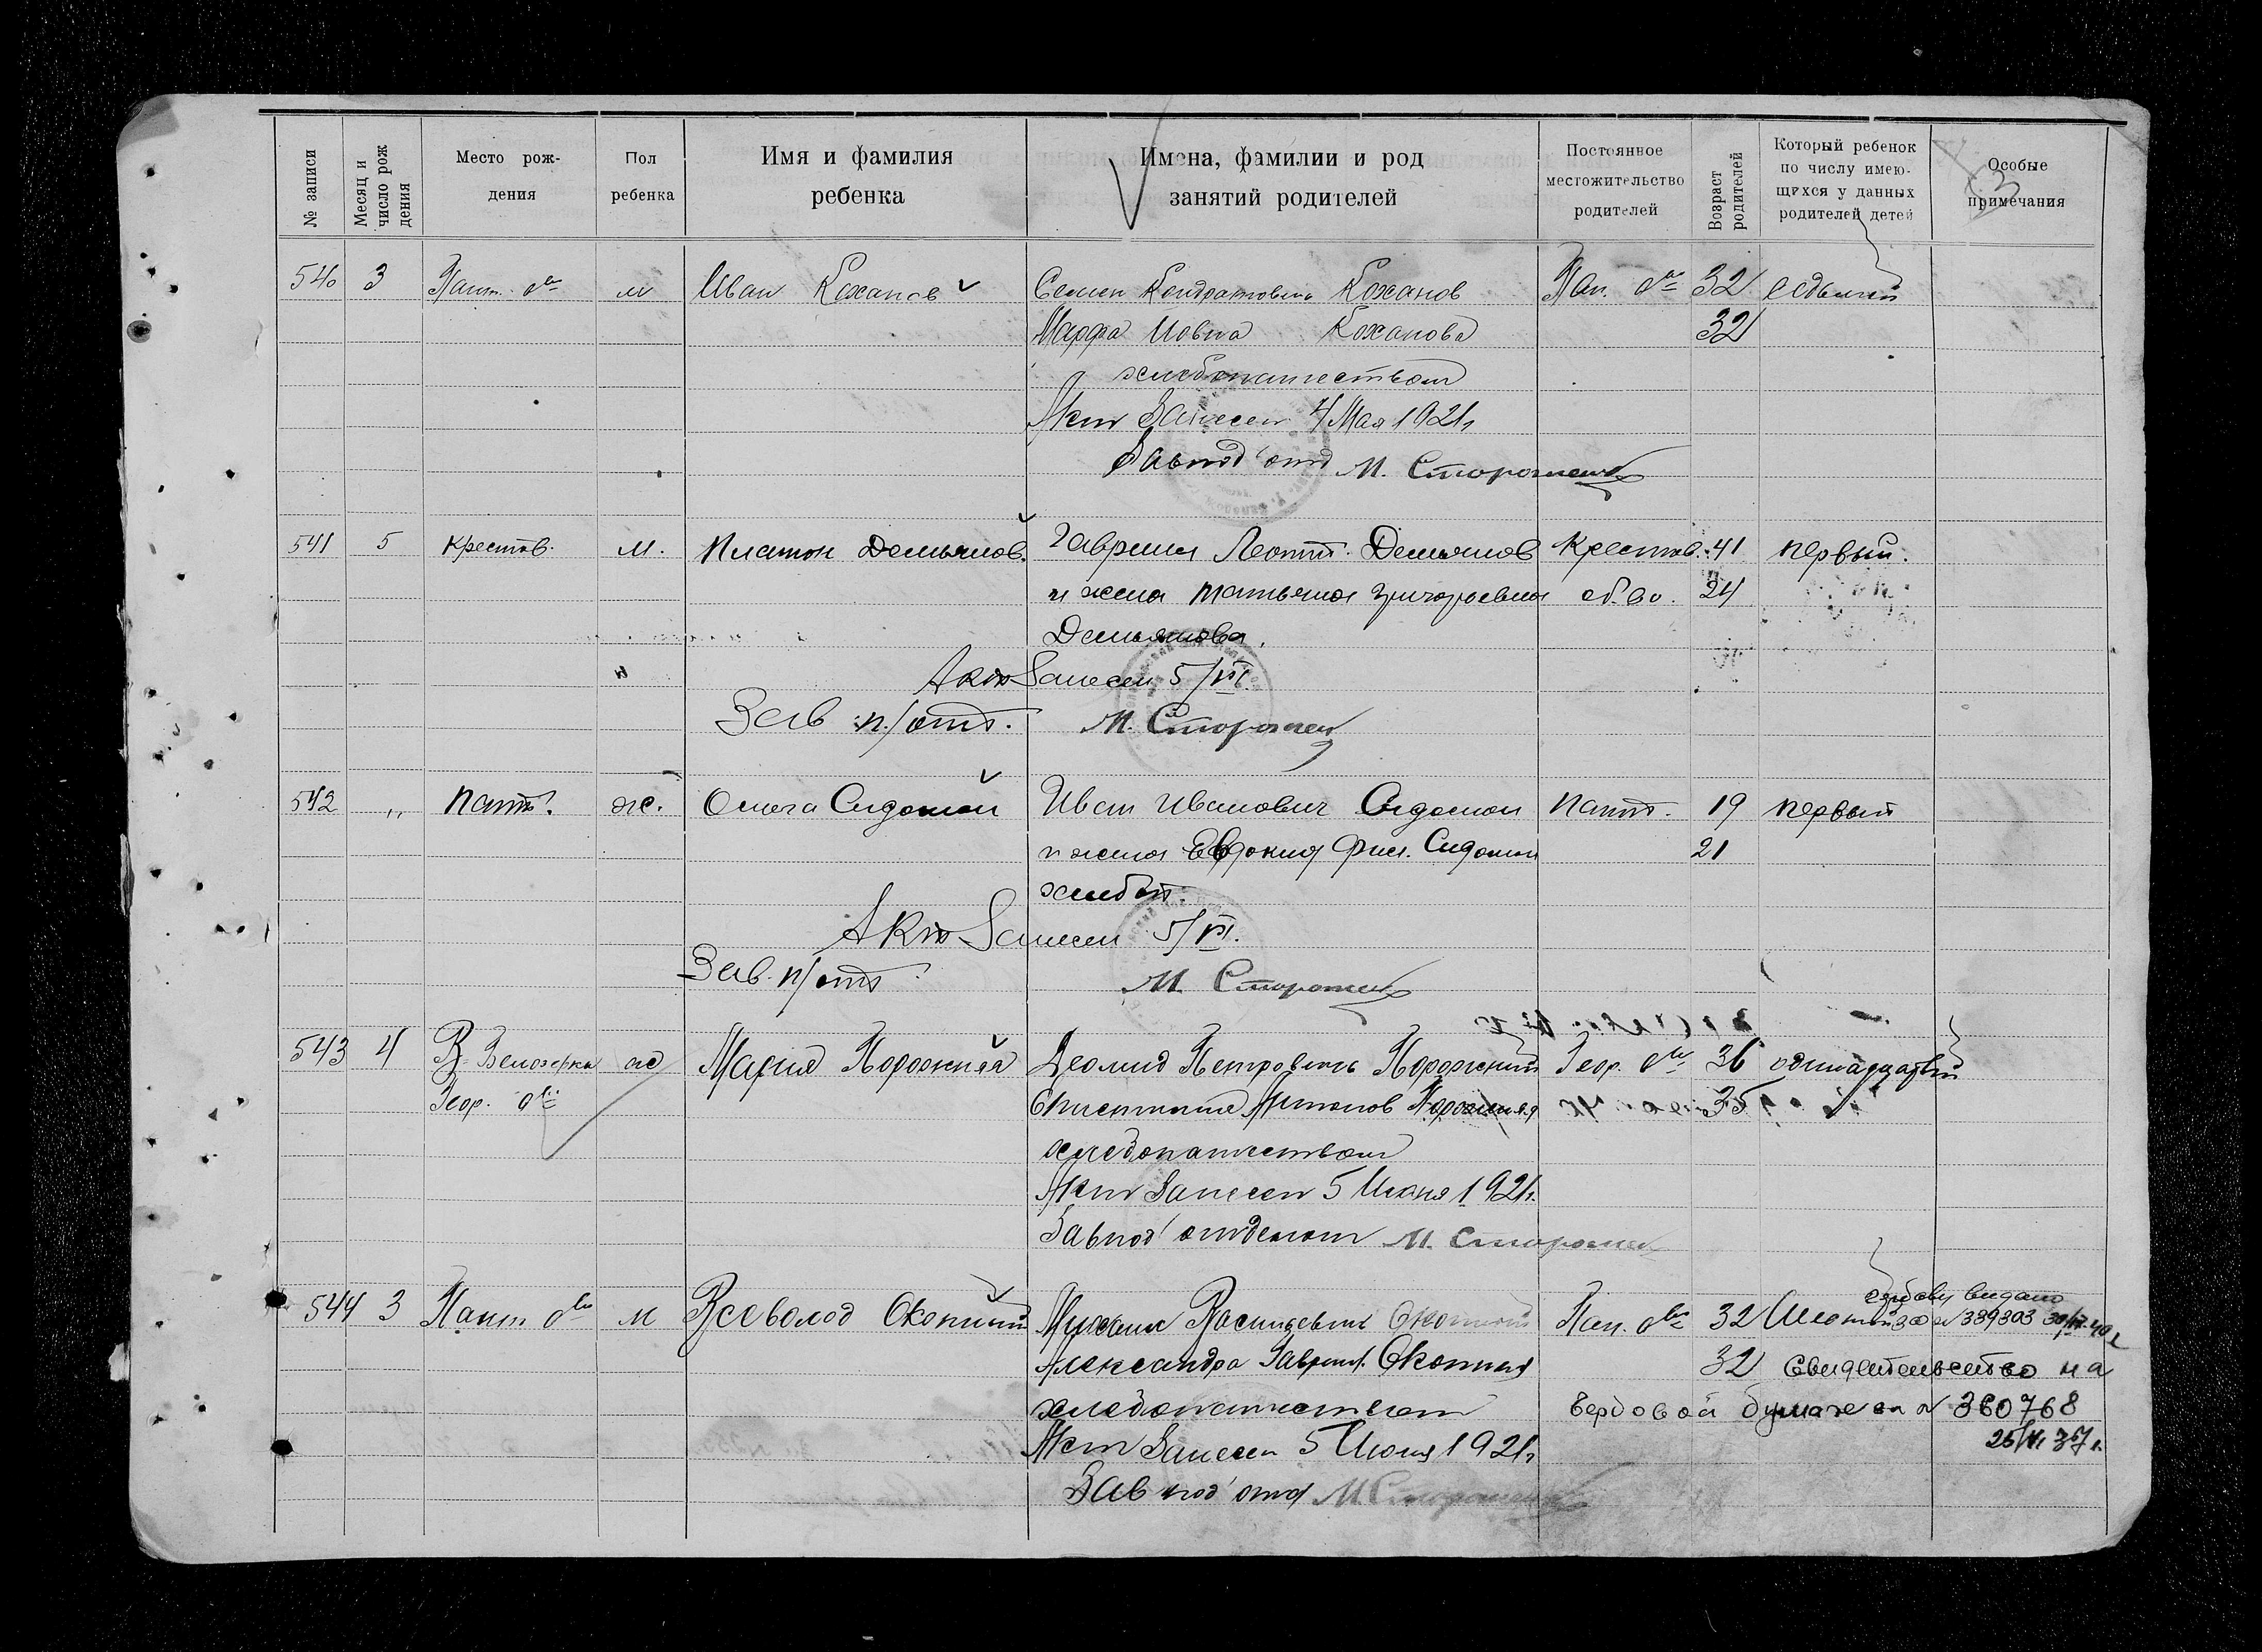 № записи
Месяц и число рождения
Место рождения
Пол ребенка
Имя и фамилия ребенка
Имена, фамилии и род занятий родителей
Постоянное местожительство родителей
Возраст родителей
Который ребенок по числу имеющихся у данных родителей детей
Особые примечания
540 3 Пант. о-ва м Иван Коханов Семен Кондратович Коханов Пан. о-ва 32 седьмой
Марфа Иовна Коханова 32
хлебопашеством
Акт Занесен 4 Мая 1921 г
Зав под отд М. Стороженко
541 5 Крестов. м. Платон Демьянов. Гавриил Леонт. Демьянов Крестов. 41 первый.
и жена Татьяна Григорьевна об-во. 24
Демьянова.
Акт Занесен 5/VI.
Зав п/отд. М. Сторожен
542 " Пант. ж. Ольга Сидоной Иван Иванович Сидоной Пант. 19 первый
и жена Евдокия Фил. Сидоной 21
хлебоп.
Акт Занесен 5/VI.
Зав. п/отд М. Сторожен
543 4 В-Белозерка ж Мария Порожняя Деомид Петрович Порожний Геор. о-ва 36 одинадцатый
Геор. о-ва Антонов Порожняя 35
хлебопашеством
Акт Занесен 5 Июня 1921 г.
Завпод отделом М. Сторожен
544 3 Пант о-ва м Всеволод Окопный Михаил Васильевич Окопный Пан. о-ва 32 видано
№ 339303
Александра Гаврил. Окопная 32 Свидетельство на
хлебопашеством гербовой бумаге за № 360768
25/VI 37 г.
Акт Занесен 5 Июня 1921 г
Зав под отд М Стороженко